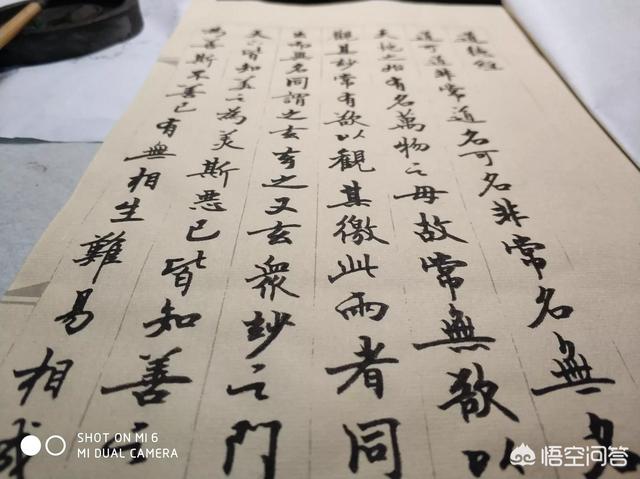 道德經
道可道非常道名可名非常名無名
天地之始有名萬物之母故常無欲以
觀其妙常有欲以觀其徼此兩者同
出而異名同謂之玄玄之又玄衆妙之門
天下皆知美之為美斯惡已皆知善之
為善斯不善已有無相生難易相成
SHOT ON MI 6
MI DUAL CAMERA
悟空问答